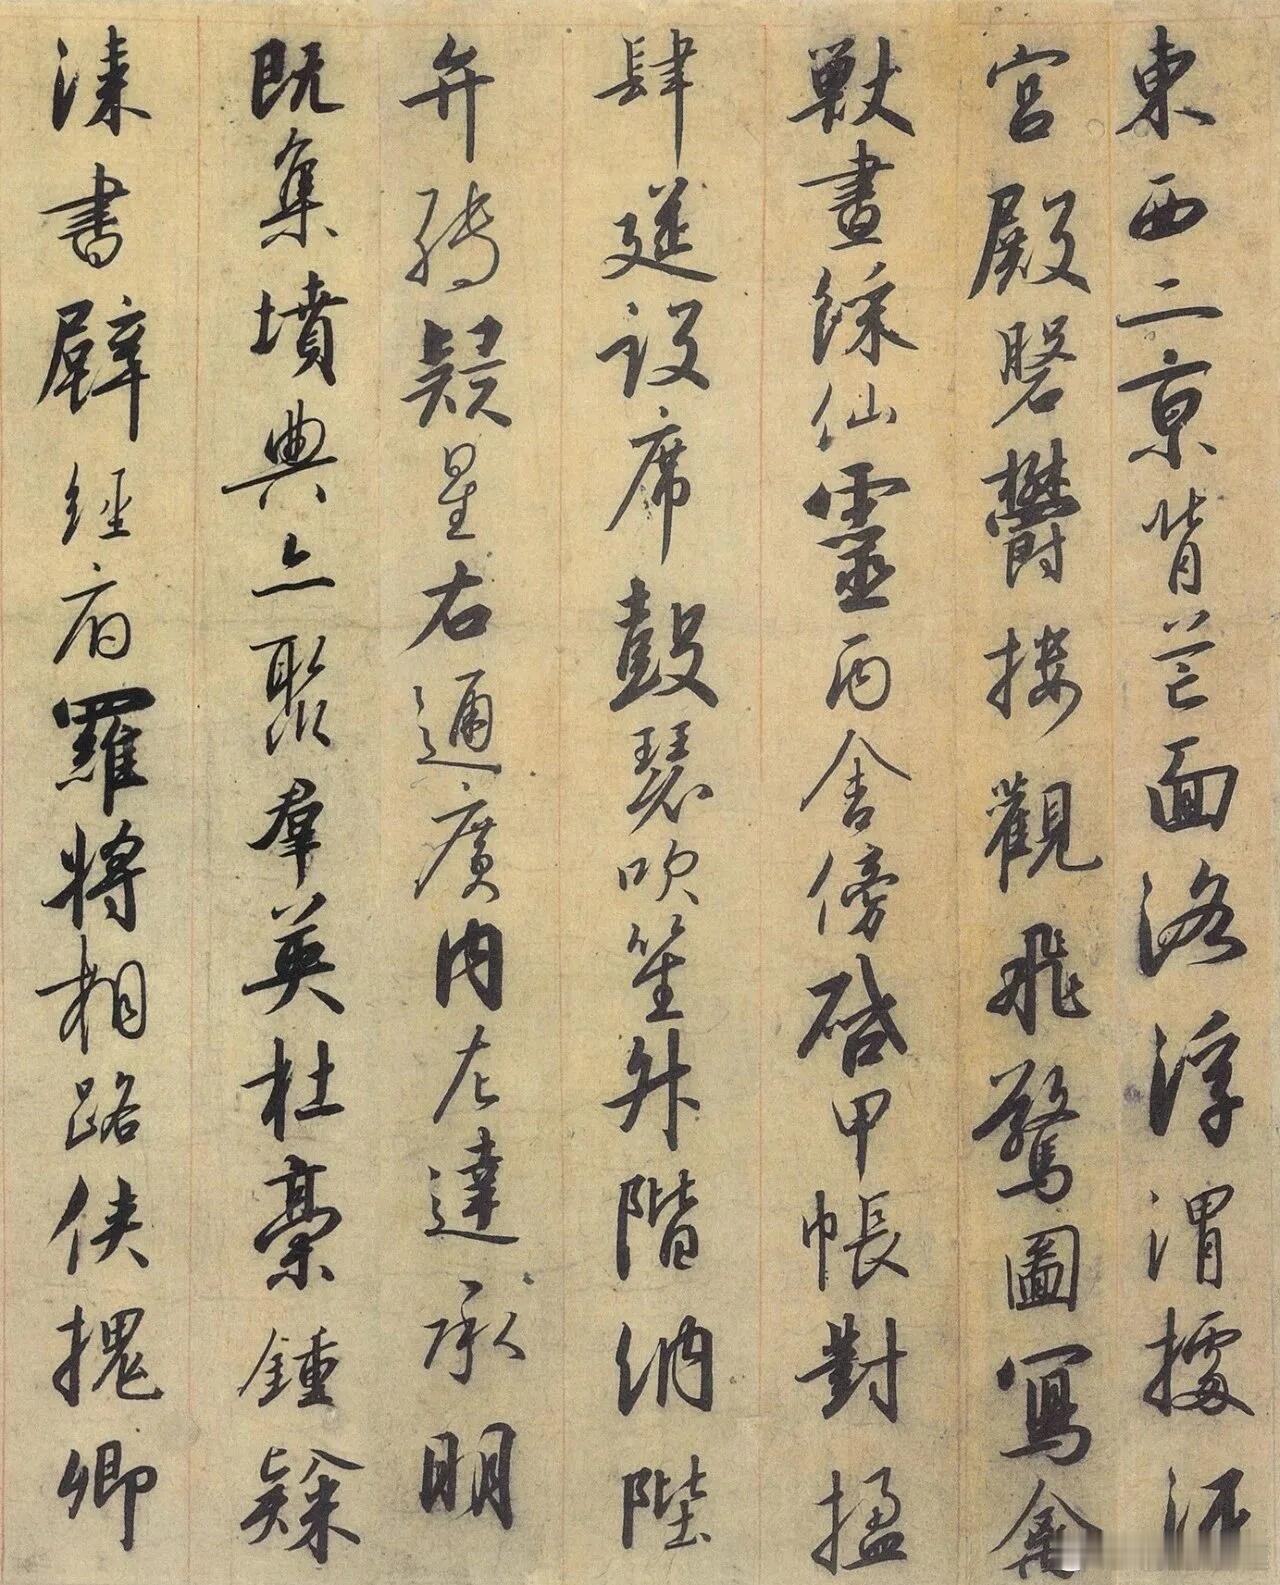 東西二京背芒面洛浮渭據涇
宮殿磐欝樓觀飛驚圖寫禽
獸畫綵仙靈丙舍傍啓甲帳對楹
肆筵設席鼓瑟吹笙升階納陛
弁轉疑星右通廣內左達承明
既集墳典亦聚群英杜稾鍾隸
漆書壁經府羅將相路俠槐卿